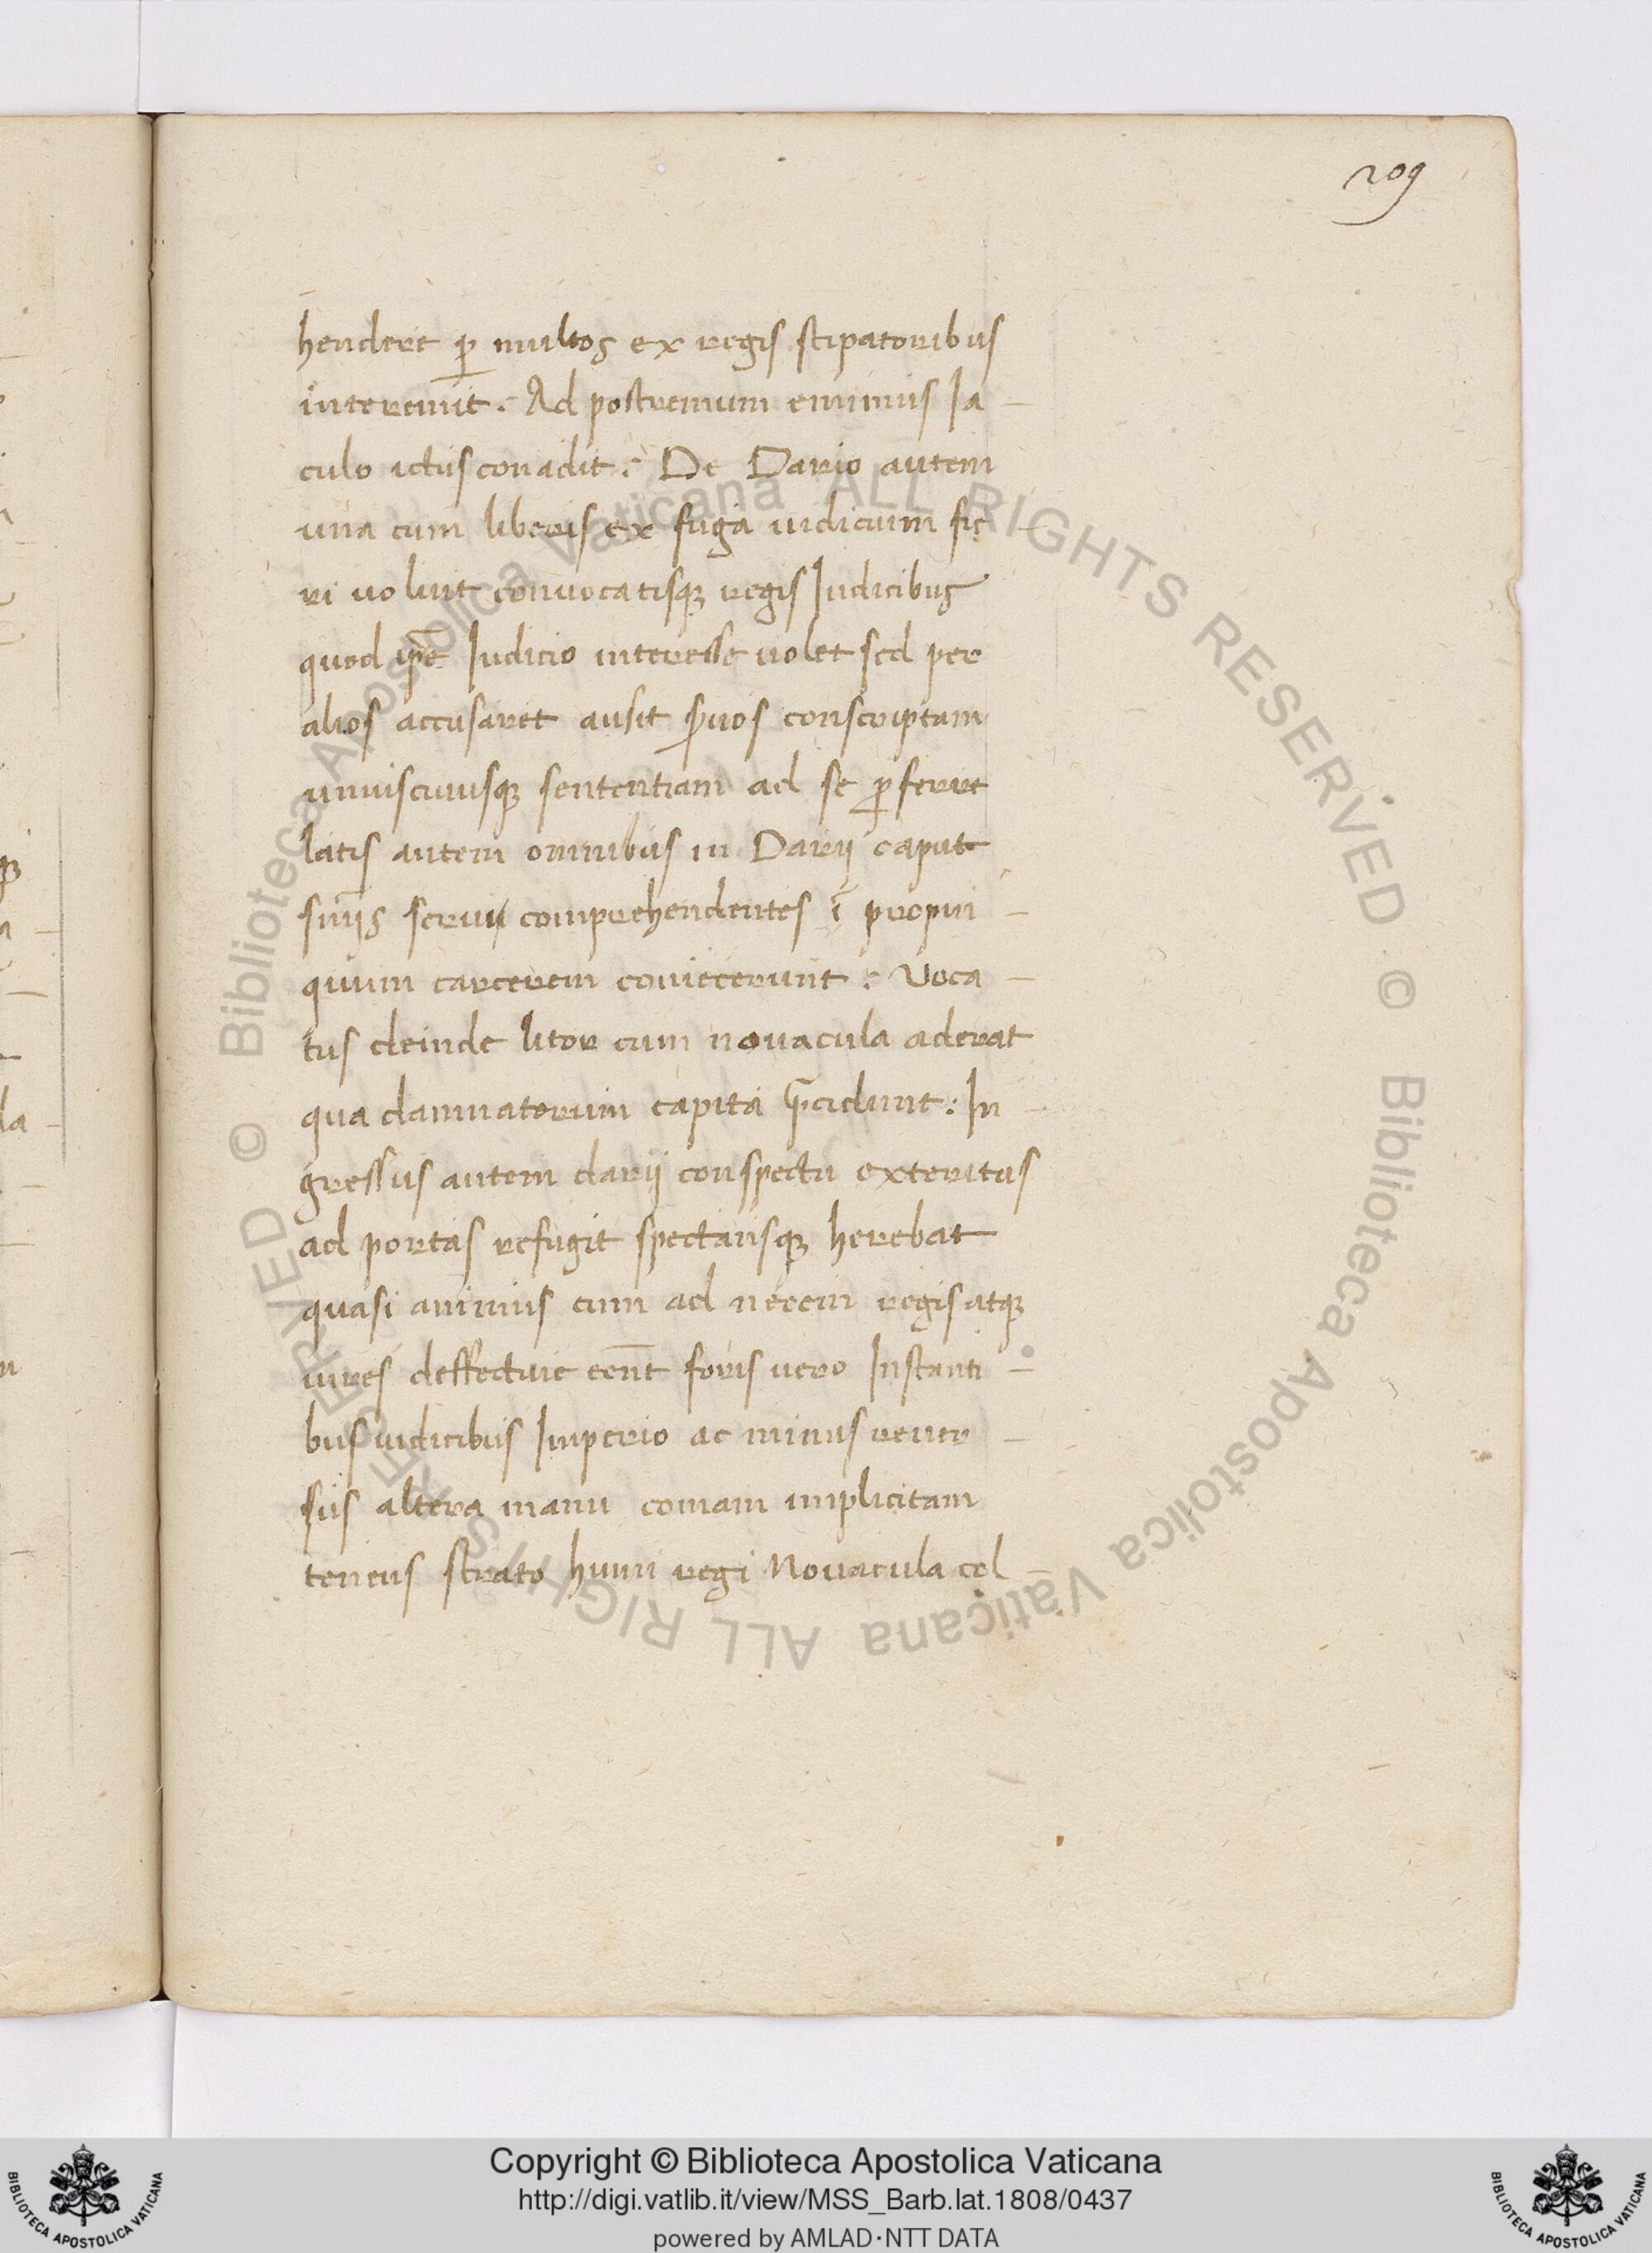 209
hendere ꝑ multos ex regis stipatoribus
interemit. Ad postremum eminus Ia-
culo ictus concidit: De Dario autem
una cum liberis ex fuga iudicium fie-
ri voluit convocatisqꝫ regis Iudicibus
quod ip̄e Iudicio interesse nolet sed per
alios accusaret ausit conscriptam
uniuscuiusqꝫ sententiam ad se ꝑferre
latis autem omnibus in Darij caput
servi comprehendentes ī propin-
quum carcerem coniecerunt: Voca-
tus deinde litor cum novacula aderat
qua damnatorum capita In-
gressus autem darij conspectu exteritus
ad portas refugit spectansqꝫ herebat
quasi animus cum ad necem regis atqꝫ
vires deffectuie foris vero Instanti-
bus iudicibus Imperio ac minus rever-
sus altera manu comam implicitam
tenens strato humi regi Novacula col-
© Biblioteca Apostolica Vaticana ALL RIGHTS RESERVED © Biblioteca Apostolica Vaticana ALL RIGHTS RESERVED
Copyright © Biblioteca Apostolica Vaticana
http://digi.vatlib.it/view/MSS_Barb.lat.1808/0437
powered by AMLAD·NTT DATA
BIBLIOTECA APOSTOLICA VATICANA
BIBLIOTECA APOSTOLICA VATICANA